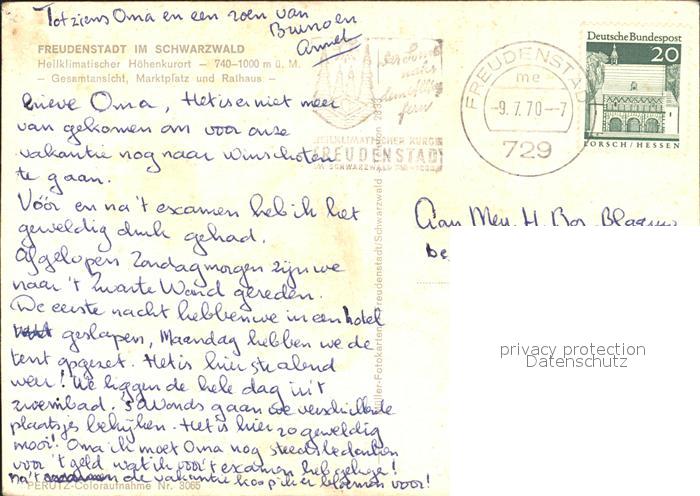 Tot ziens Oma en een zoen van
Bruinoen
Annet
FREUDENSTADT IM SCHWARZWALD
Heilklimatischer Höhenkurort — 740–1000 m ü. M.
— Gesamtansicht, Marktplatz und Rathaus —
Lieve Oma, Het is er niet meer
van gekomen om voor onze
vakantie nog naar Winschoten
te gaan.
Vóór en na 't examen heb ik het
geweldig druk gehad.
Afgelopen Zondagmorgen zijn we
naar 't Zwarte Woud gereden.
De eerste nacht hebben we in een hotel
geslapen, Maandag hebben we de
tent opgezet. Het is hier stralend
weer! We liggen de hele dag in 't
zwembad. 's Avonds gaan we verschillende
plaatsjes bekijken. Het is hier zo geweldig
mooi! Oma ik moet Oma nog steeds bedanken
voor 't geld wat ik voor 't examen heb gehad!
na 't de vakantie koop ik er bloemen voor!
PERUTZ-Coloraufnahme Nr. 3065
HEILKLIMATISCHER KURORT
FREUDENSTADT
IM SCHWARZWALD 740-1000
FREUDENSTADT
me
-9.7.70-7
729
Deutsche Bundespost
20
LORSCH/HESSEN
Freudenstadt/Schwarzwald
Aan Mev. H. Bos.
privacy protection
Datenschutz